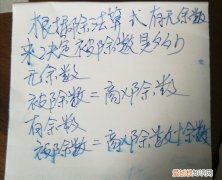 根据除法算式有无余数
来决定被除数是多少
无余数
被除数=商×除数
有余数
被除数=商×除数+余数
知秀网